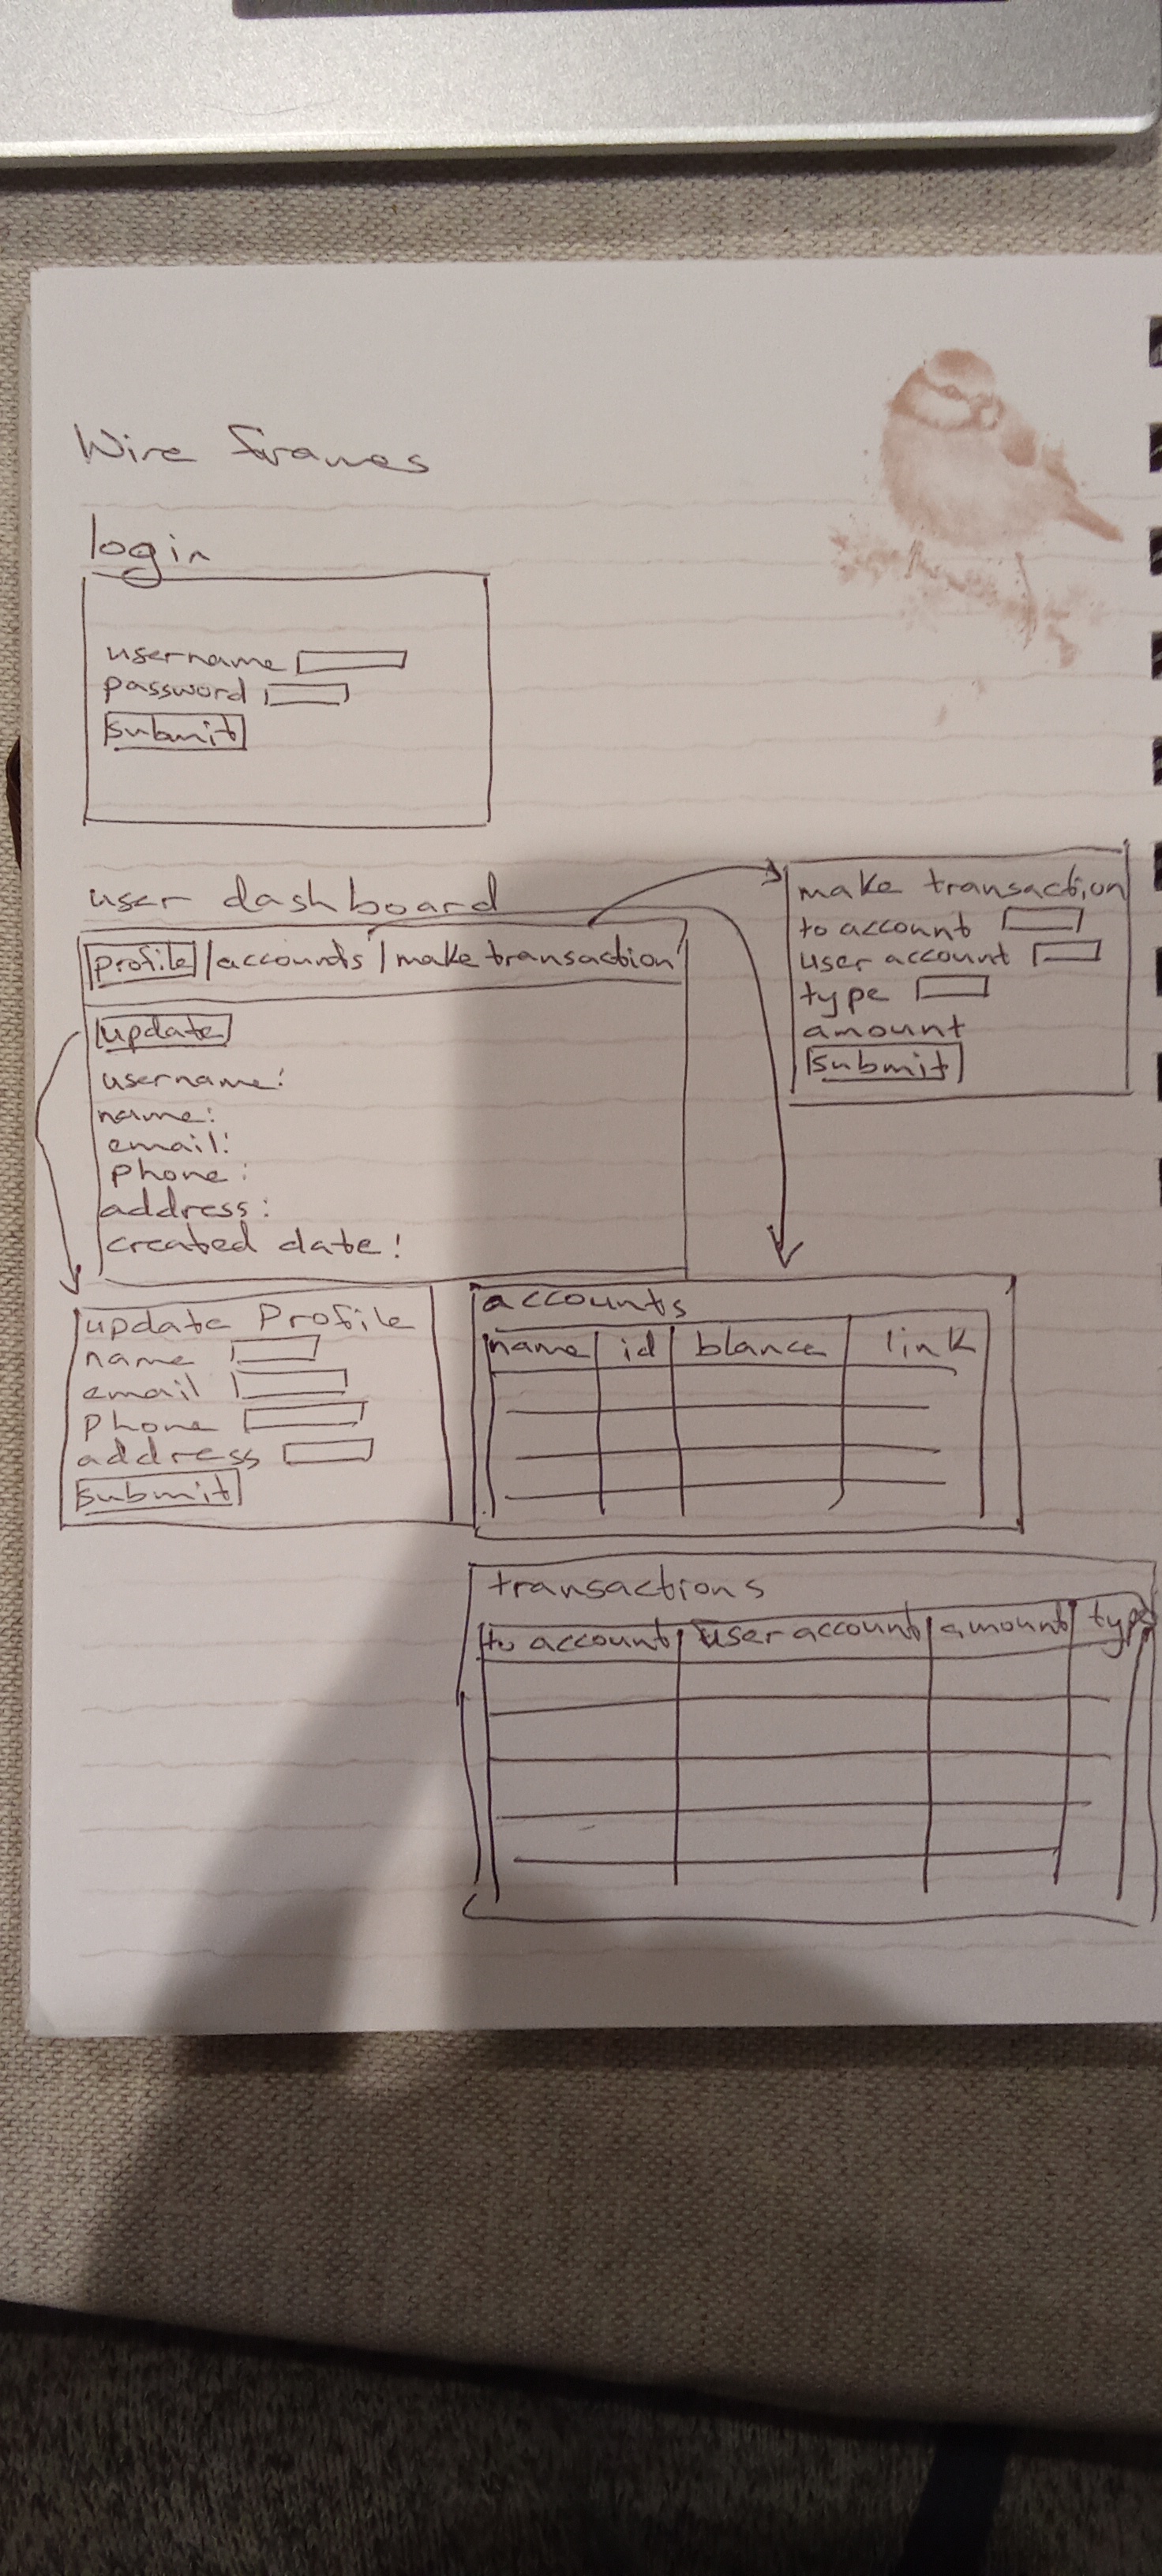 Wire frames
login
username
password
submit
user dashboard
profile | accounts | make transaction
update
username:
name:
email:
phone:
address:
created date:
make transaction
to account
user account
type
amount
submit
update Profile
name
email
phone
address
submit
accounts
name id blance link
transactions
to account user account amount type